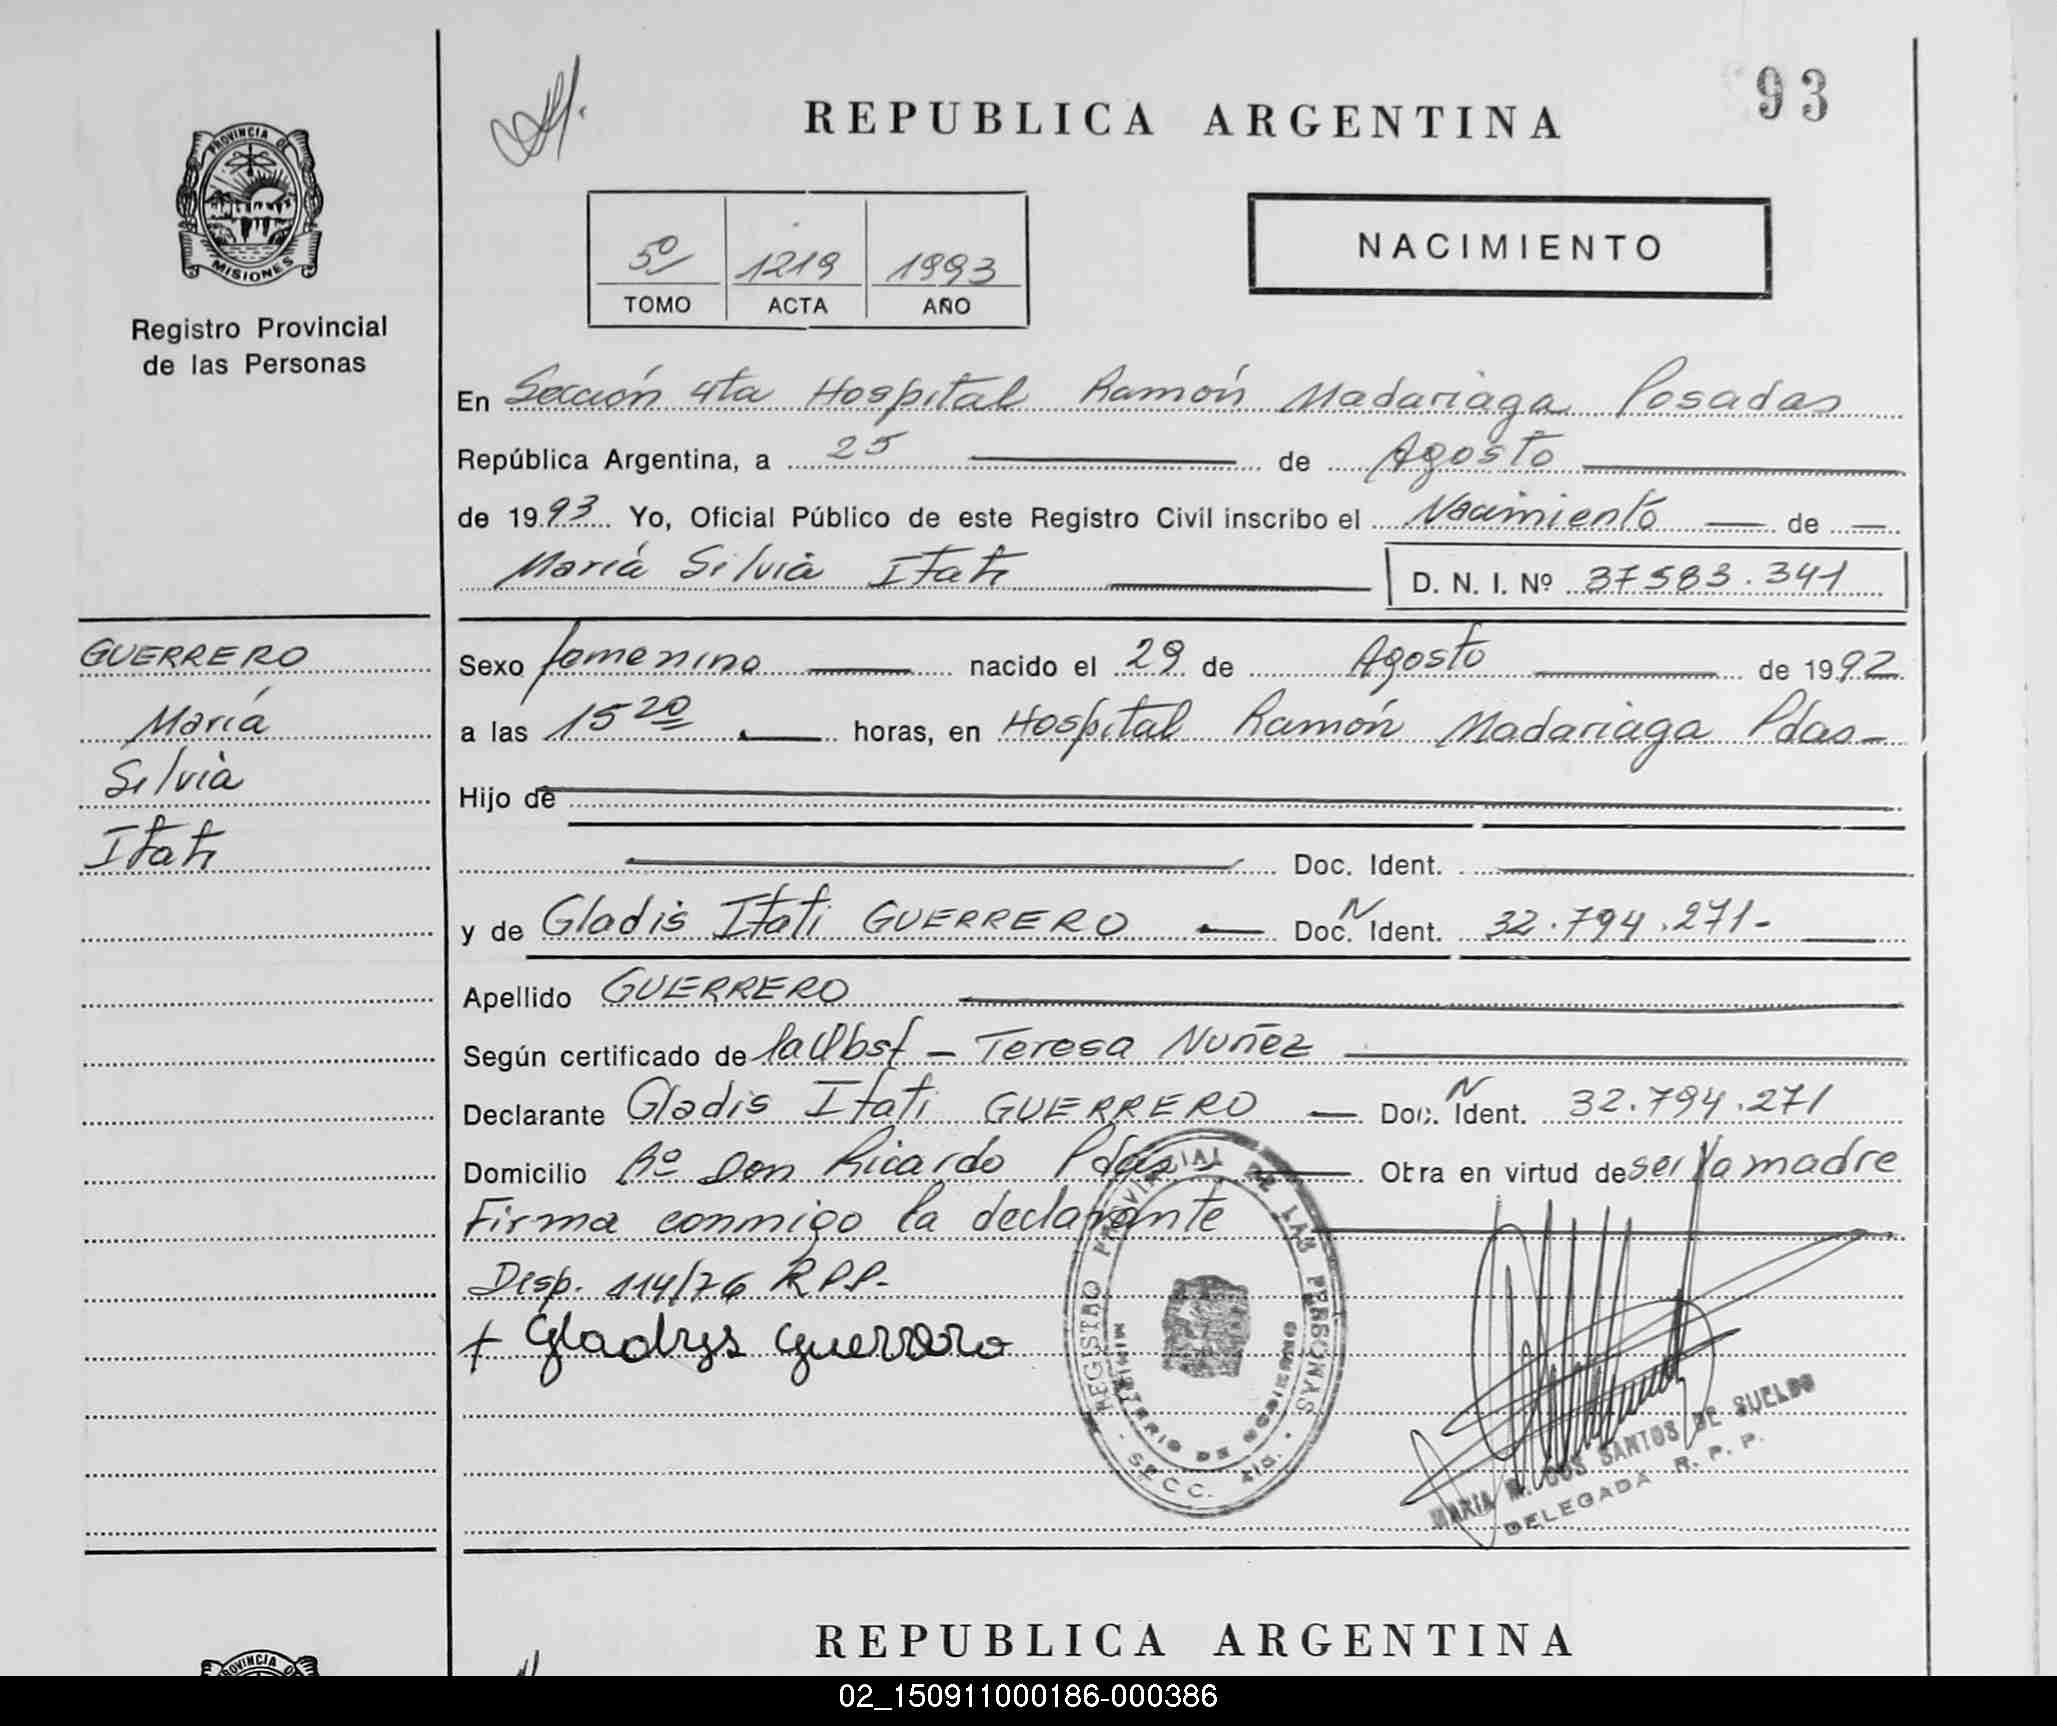 93
REPUBLICA ARGENTINA
PROVINCIA DE
MISIONES
Registro Provincial
de las Personas
5º 1219 1993
TOMO ACTA AÑO
NACIMIENTO
En Sección 4ta Hospital Ramón Madariaga Posadas
República Argentina, a 25 de Agosto
de 1993 Yo, Oficial Público de este Registro Civil inscribo el Nacimiento de
María Silvia Itatí D. N. I. Nº 37583.341
GUERRERO
María
Silvia
Itatí
Sexo femenino nacido el 29 de Agosto de 1992
a las 15 20 horas, en Hospital Ramón Madariaga Pdas
Hijo de
Doc. Ident.
y de Gladis Itati GUERRERO Doc. N Ident. 32.794.271-
Apellido GUERRERO
Según certificado de la Obst - Teresa Nuñez
Declarante Gladis Itati GUERRERO Doc. N Ident. 32.794.271
Domicilio Bº Don Ricardo Pdas Obra en virtud de ser la madre
Firma conmigo la declarante
Disp. 114/76 R.P.P.
+ Gladys Guerrero
REGISTRO PROVINCIAL DE LAS PERSONAS
MINISTERIO DE GOBIERNO
SECC. 4ta.
MARIA M. DOS SANTOS DE SUELDO
DELEGADA R. P. P.
REPUBLICA ARGENTINA
PROVINCIA DE
02_150911000186-000386